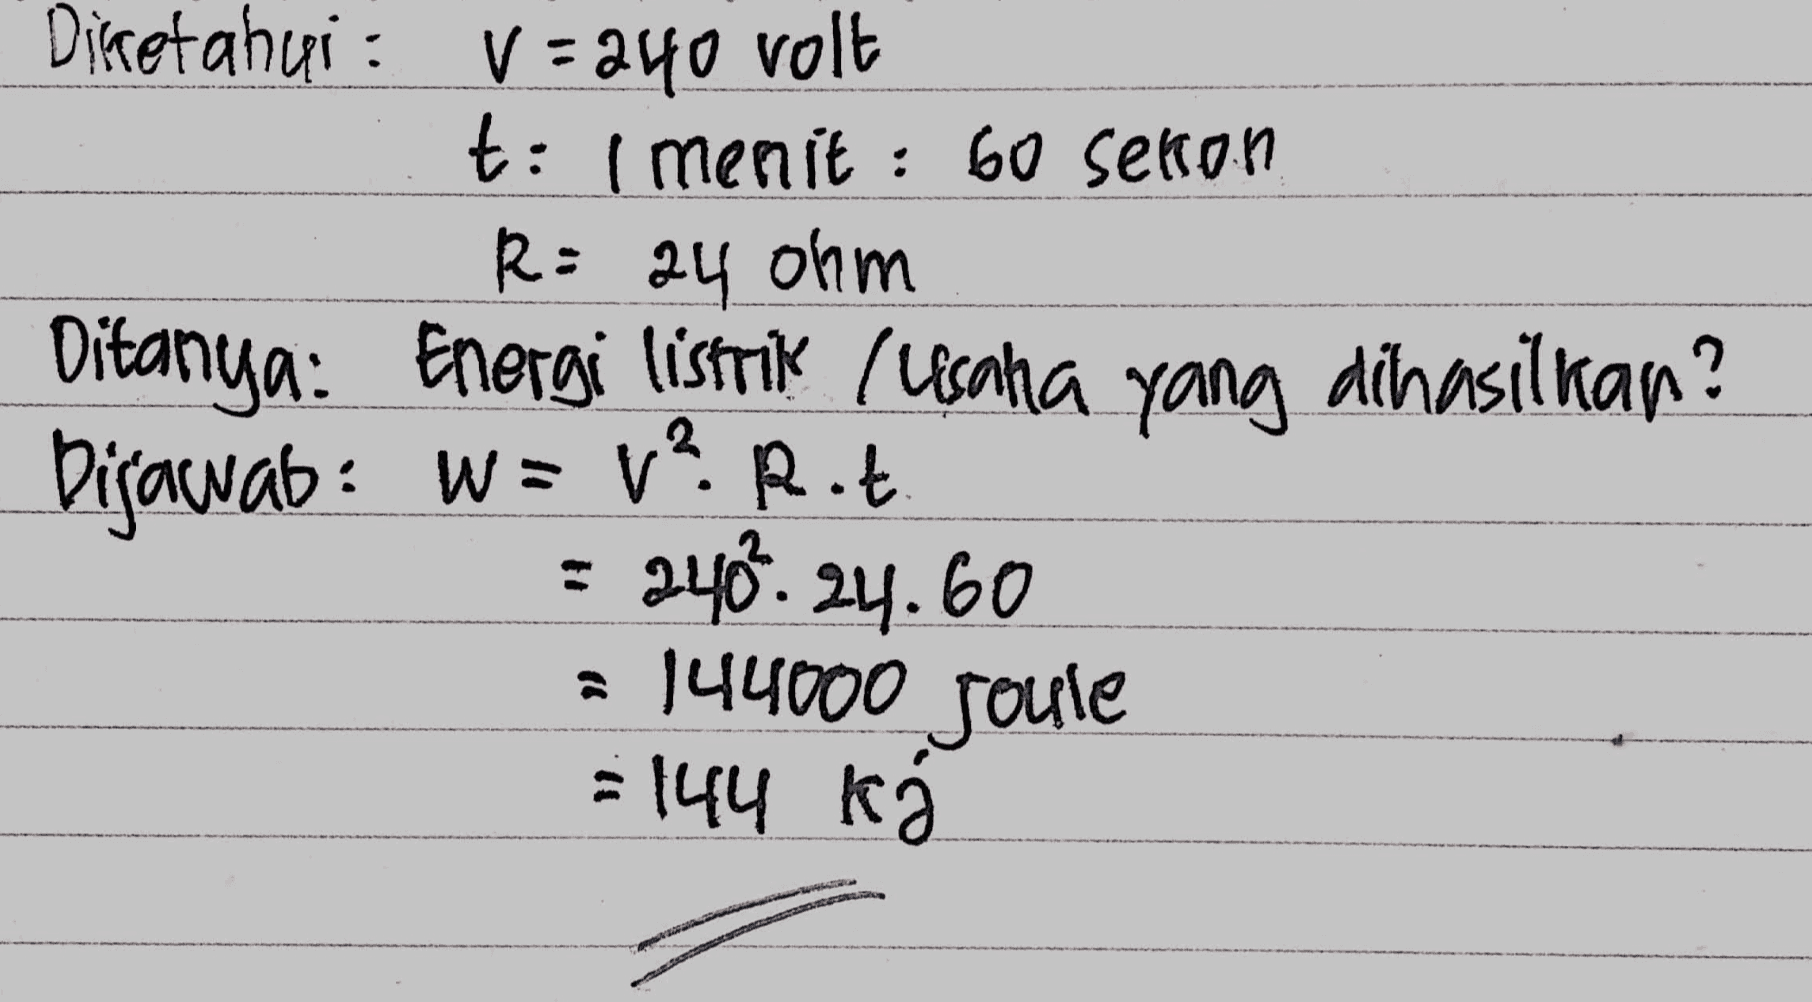 Diketahui : V = 240 volt
t = 1 menit = 60 sekon
R = 24 ohm
Ditanya : Energi listrik / Usaha yang dihasilkan?
Dijawab : W = V². R . t
= 240². 24 . 60
= 144000 joule
= 144 kj